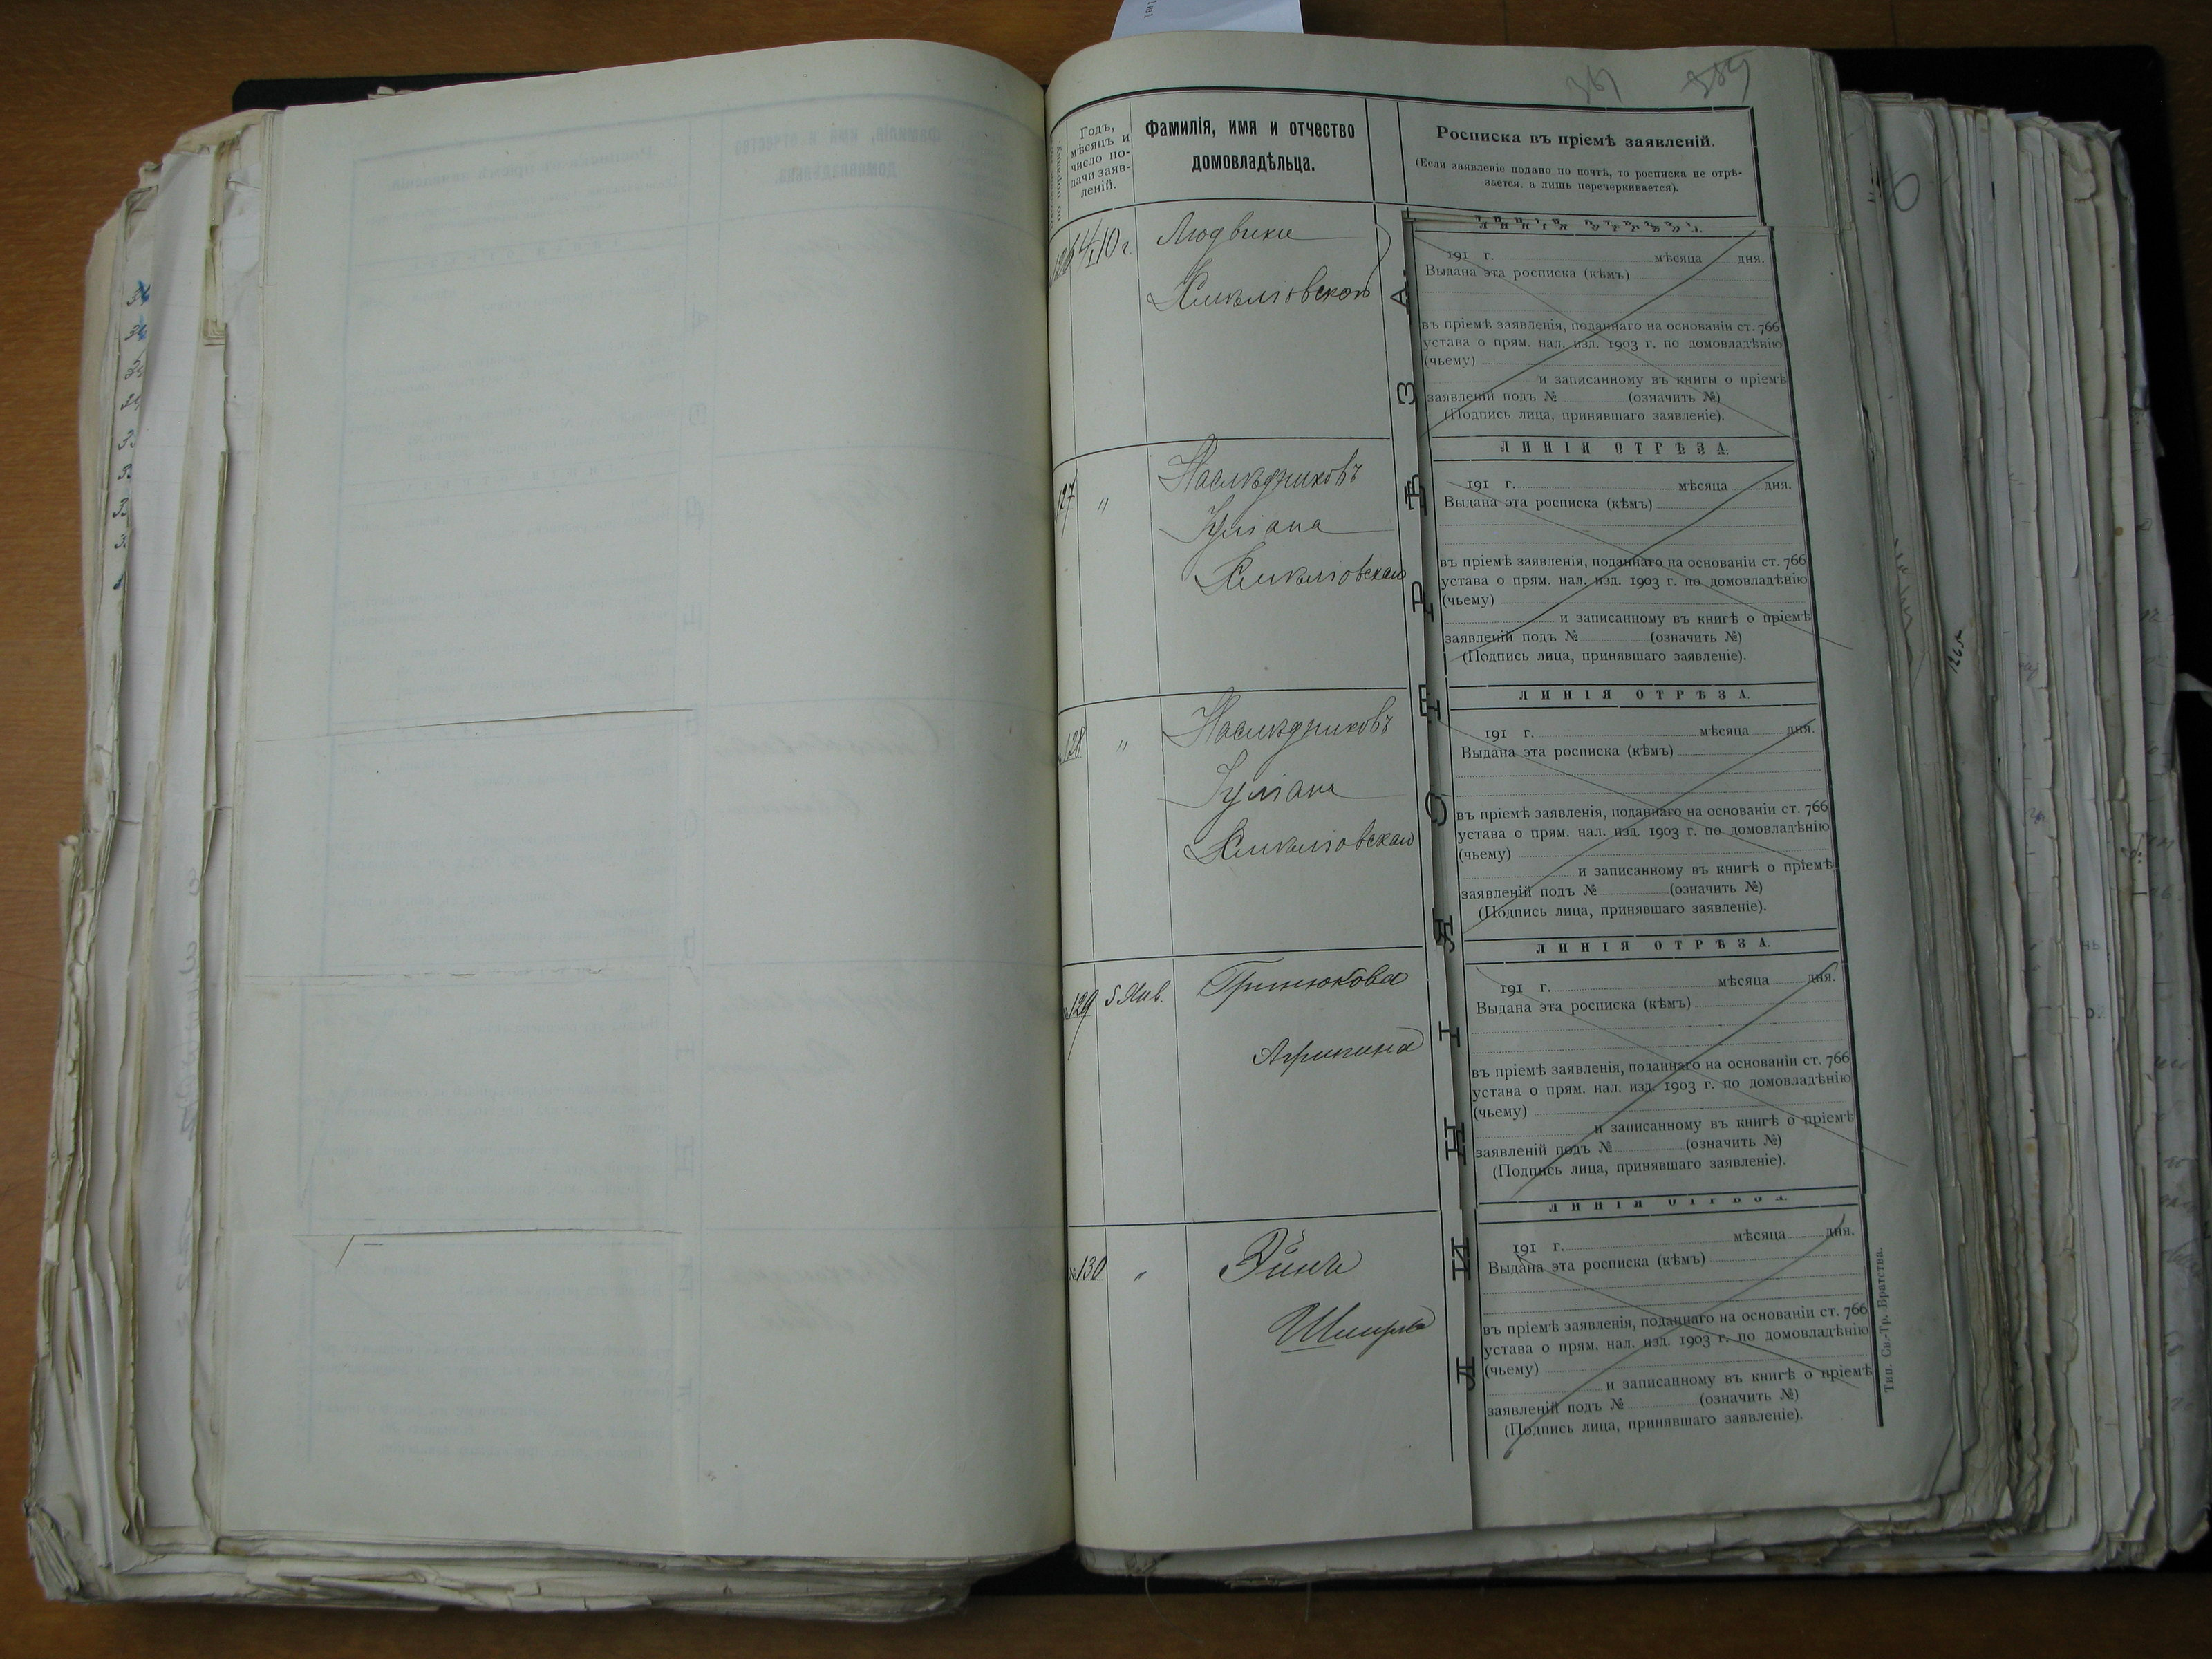 389
по порядку.
Годъ,
мѣсяцъ и
число по-
дачи заяв-
леній.
Фамилія, имя и отчество
домовладѣльца.
Росписка въ пріемѣ заявленій.
(Если заявленіе подано по почтѣ, то росписка не отрѣ-
зается, а лишь перечеркивается).
126 10 г. Людвики
ЛИНІЯ ОТРѢЗА
191 г. мѣсяца дня.
Выдана эта росписка (кѣмъ)
въ пріемѣ заявленія, поданнаго на основаніи ст. 766
устава о прям. нал. изд. 1903 г. по домовладѣнію
(чьему)
и записанному въ книгы о пріемѣ
заявленій подъ № (означить №)
(Подпись лица, принявшаго заявленіе).
127 " Наслѣдниковъ
Іуліана
ЛИНІЯ ОТРѢЗА.
191 г. мѣсяца дня.
Выдана эта росписка (кѣмъ)
въ пріемѣ заявленія, поданнаго на основаніи ст. 766
устава о прям. нал. изд. 1903 г. по домовладѣнію
(чьему)
и записанному въ книгѣ о пріемѣ
заявленій подъ № (означить №)
(Подпись лица, принявшаго заявленіе).
128 " Наслѣдниковъ
Іуліана
ЛИНІЯ ОТРѢЗА.
191 г. мѣсяца дня.
Выдана эта росписка (кѣмъ)
въ пріемѣ заявленія, поданнаго на основаніи ст. 766
устава о прям. нал. изд. 1903 г. по домовладѣнію
(чьему)
и записанному въ книгѣ о пріемѣ
заявленій подъ № (означить №)
(Подпись лица, принявшаго заявленіе).
129 5 Янв. Гринюкова
ЛИНІЯ ОТРѢЗА.
191 г. мѣсяца дня.
Выдана эта росписка (кѣмъ)
въ пріемѣ заявленія, поданнаго на основаніи ст. 766
устава о прям. нал. изд. 1903 г. по домовладѣнію
(чьему)
и записанному въ книгѣ о пріемѣ
заявленій подъ № (означить №)
(Подпись лица, принявшаго заявленіе).
№130 "
Шмуля
ЛИНІЯ ОТРѢЗА.
191 г. мѣсяца дня.
Выдана эта росписка (кѣмъ)
въ пріемѣ заявленія, поданнаго на основаніи ст. 766
устава о прям. нал. изд. 1903 г. по домовладѣнію
(чьему)
и записанному въ книгѣ о пріемѣ
заявленій подъ № (означить №)
(Подпись лица, принявшаго заявленіе).
ЛИНІЯ ОТРѢЗА
Тип. Св.-Тр. Братства.